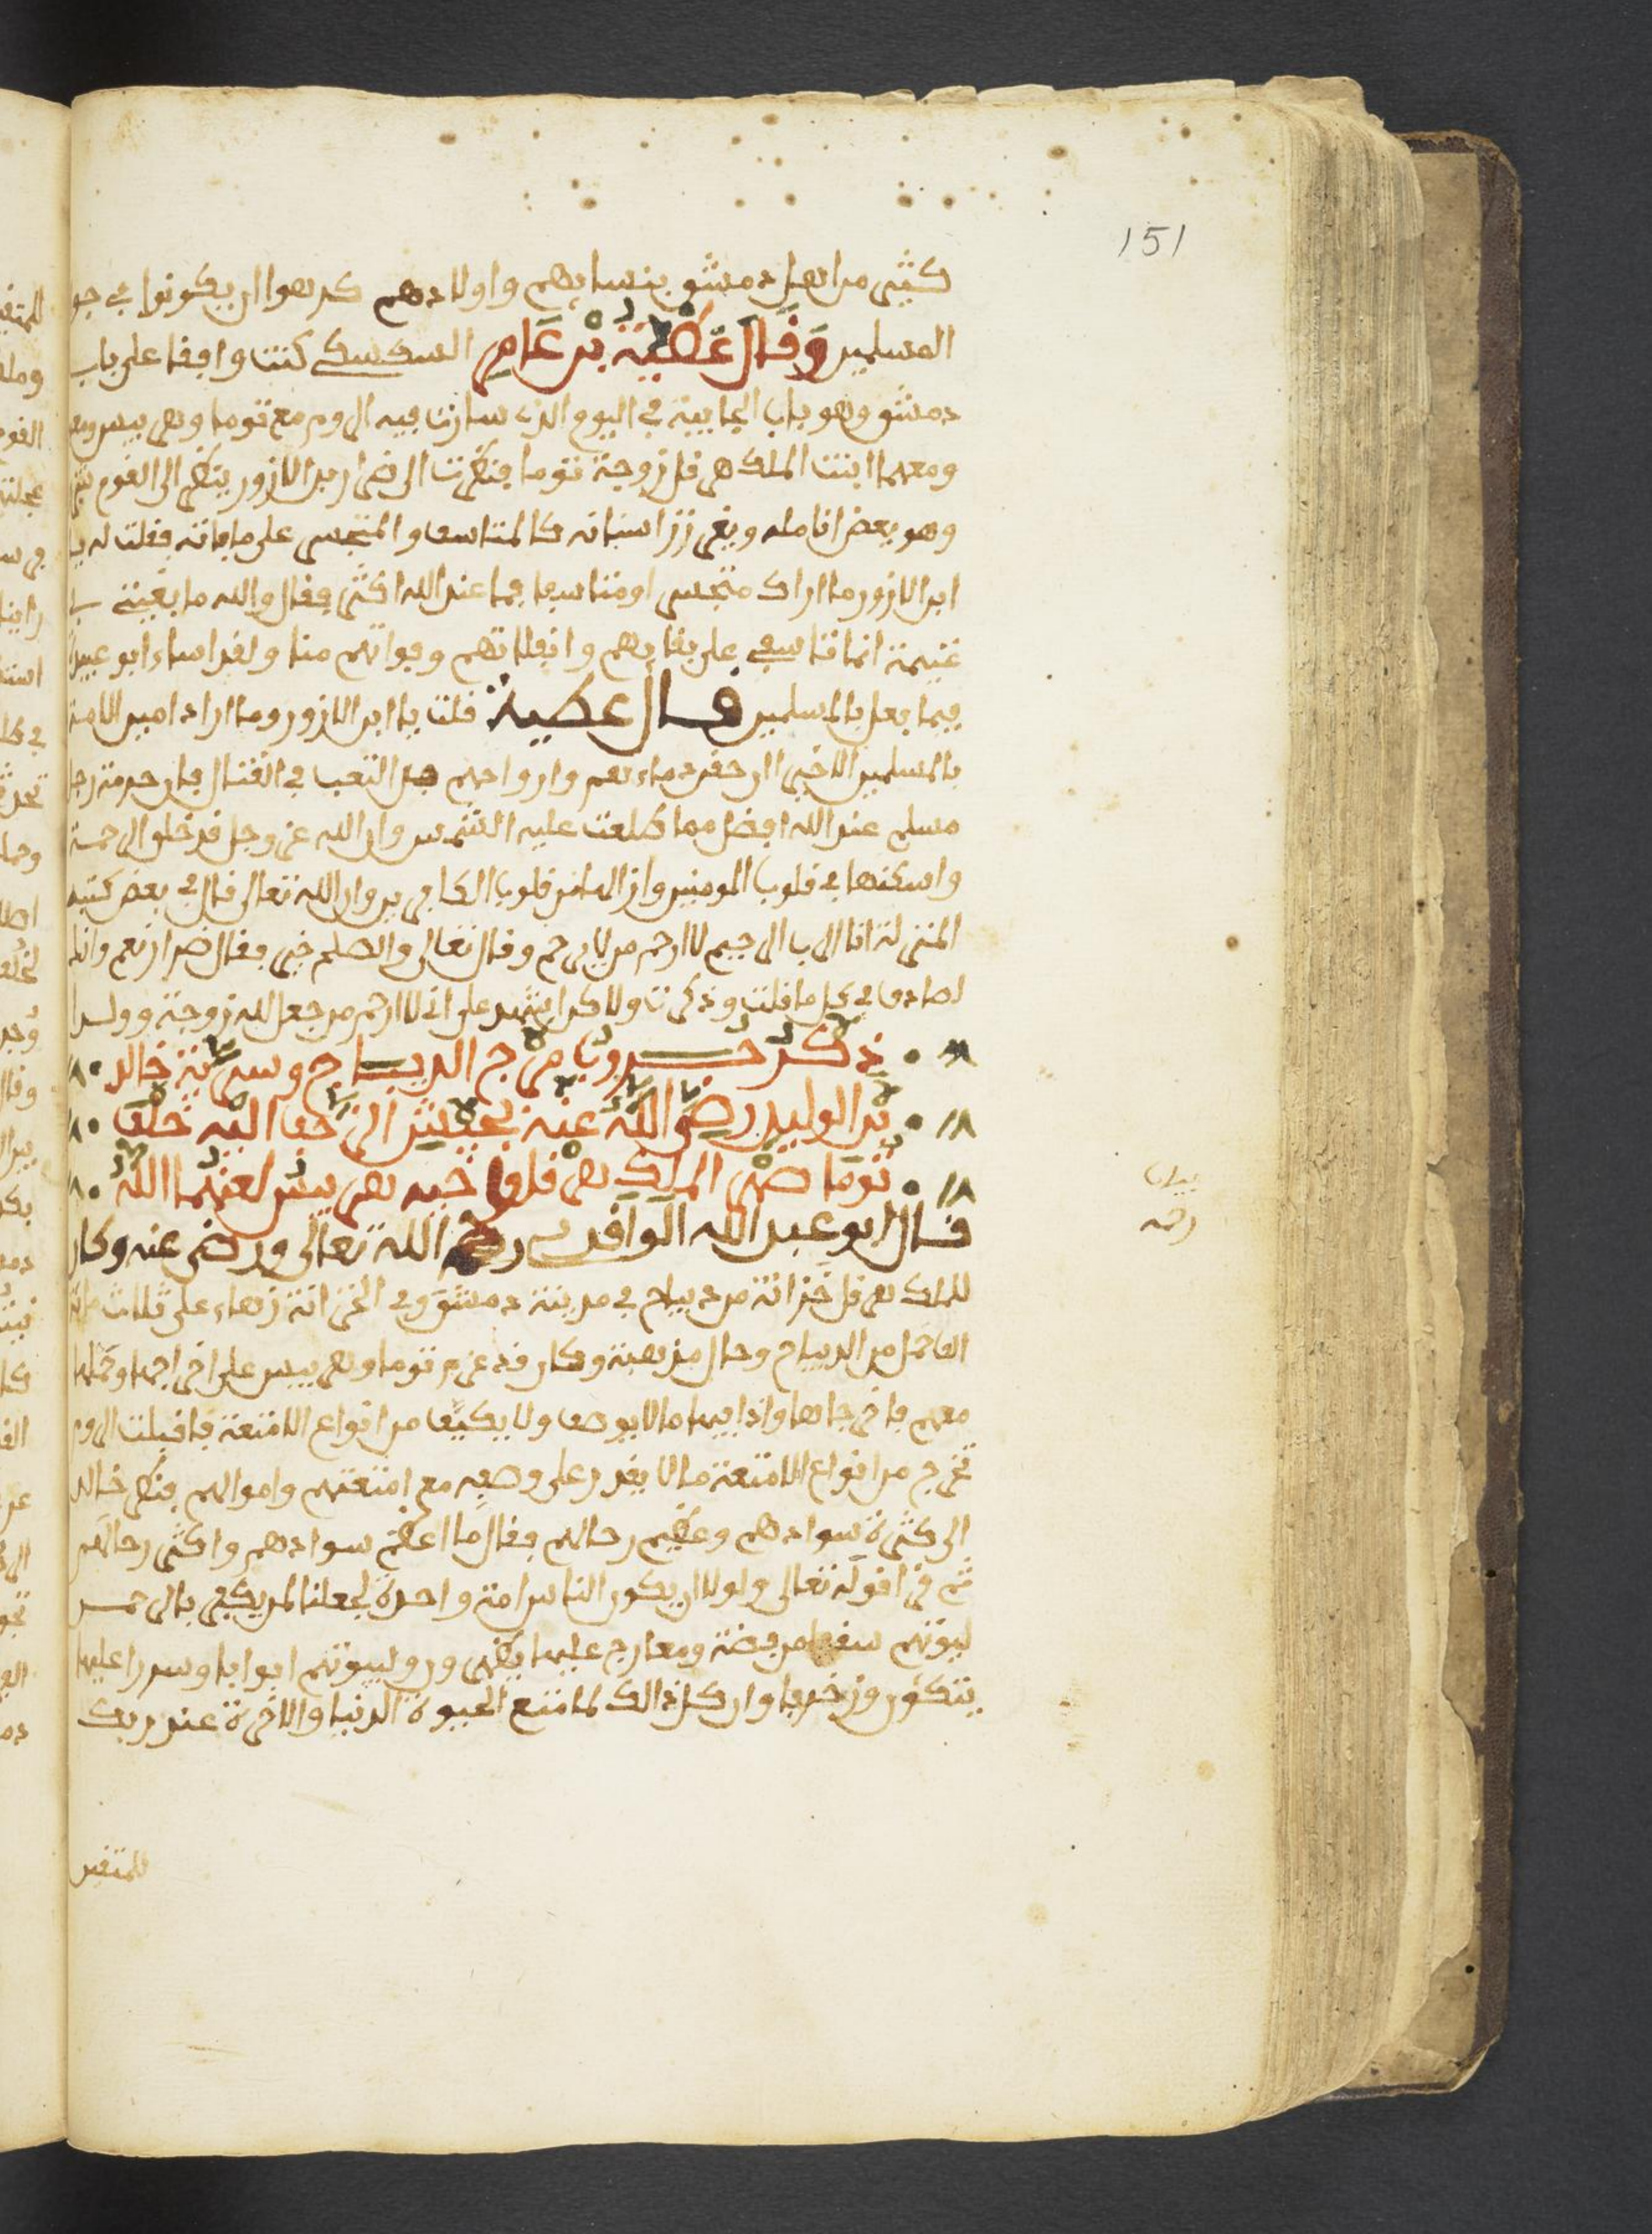 151
كثير من اهل دمشق بنسايهم واولادهم كرهوا ان يكونوا في جو
المسلمين وقال عطية بن عامر السكسكي كنت واقفا على باب
دمشق وهو باب الجابية في اليوم الذي سارت فيه الروم مع توما وهربيس
ومعهما ابنت الملك هرقل زوجة توما فنظرت الى ضرار بن الازور ينظر الى القوم
وهو يعض انامله ويغرز اسنانه كالمتاسف والمتحسر على ما فاته فقلت له يا
ابن الازور ما اراك متحسر او متاسفا فما عند الله اكثر فقال والله ما بغيتي
غنيمة انما تاسفي على بقايهم وانفلاتهم وفواتهم منا ولقد اساء ابو عبيدة
فيما فعل بالمسلمين قال عطية قلت يا ابن الازور وما اراد امين الامة
بالمسلمين الا خيرا ان حقن دماءهم وارواحهم من التعب في القتال فان حرمة رجل
مسلم عند الله افضل مما طلعت عليه الشمس وان الله عز وجل قد خلق الرحمة
واسكنها في قلوب المومنين وازالها من قلوب الكافرين وان الله تعالى قال في بعض كتبه
المنزلة انا الرب الرحيم لا ارحم من لا يرحم وقال تعالى والصلح خير فقال ضرار نعم وانك
لصادق في كل ما قلت وذكرت ولاكن اشهد على اني لا ارحم من جعل لله زوجة وولدا
ذكر حروب مرج الديباج وسرية خالد
بن الوليد رضي الله عنه بجيش الزحف اليه خلف
توما صهر الملك هرقل واخيه هربيس لعنهما الله
قال ابو عبد الله الواقدي رحمه الله تعالى ورضي عنه وكان
للملك هرقل خزانة من ديباج في مدينة دمشق وفي الخزانة زهاء على ثلاث ماية
الف حمل من الديباج وحلل مذهبة وكان قد عزم توما وهربيس على اخراجها وحملها
معهم فاخرجاها واذا فيها ما لا يوصف ولا يكيف من انواع الامتعة فاقبلت الروم
تخرج من انواع الامتعة ما لا يقدر على وصفه مع امتعتهم واموالهم فنظر خالد
الى كثرة سوادهم وعظيم رحالهم فقال ما اعظم سوادهم واكثر رحالهم
ثم قرا قوله تعالى ولولا ان يكون الناس امة واحدة لجعلنا لمن يكفر بالرحمن
لبيوتهم سقفا من فضة ومعارج عليها يظهرون ولبيوتهم ابوابا وسررا عليها
يتكؤن وزخرفا وان كل ذالك لما متع الحيوة الدنيا والاخرة عند ربك
للمتقين